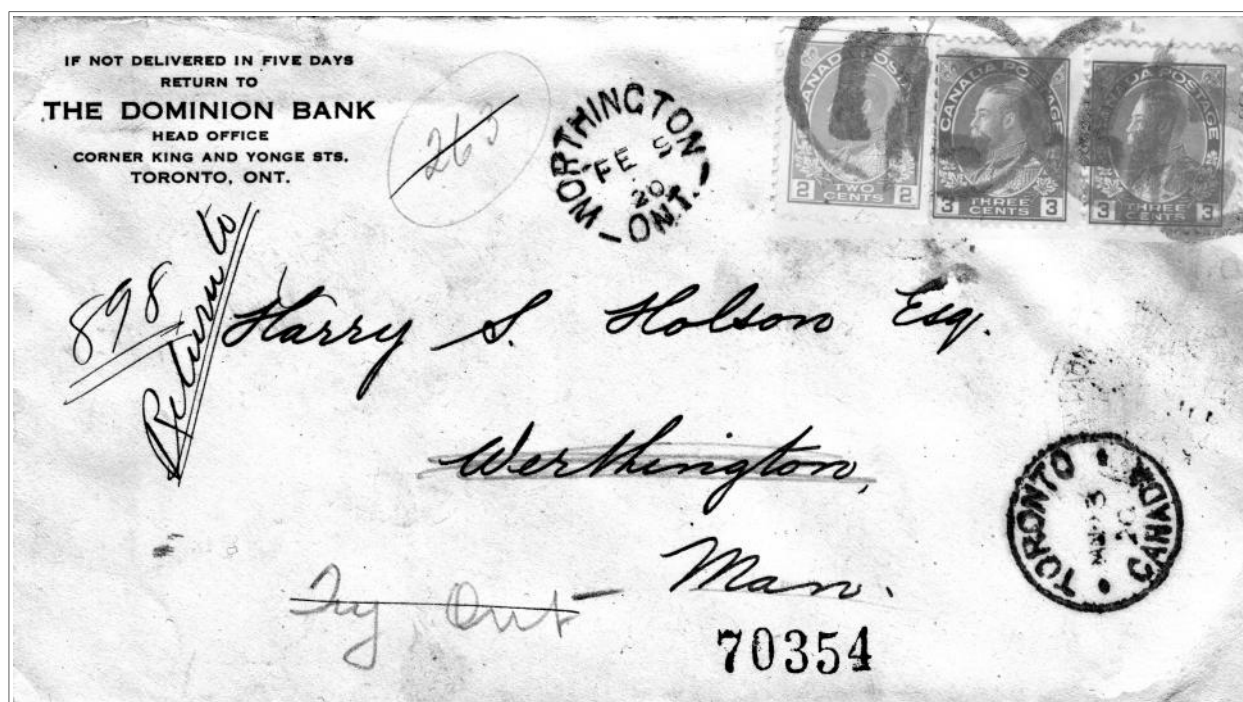 IF NOT DELIVERED IN FIVE DAYS
RETURN TO
THE DOMINION BANK
HEAD OFFICE
CORNER KING AND YONGE STS.
TORONTO, ONT.
263
WORTHINGTON
FE 5
20
ONT.
CANADA POSTAGE
2 TWO CENTS 2
CANADA POSTAGE
3 THREE CENTS 3
CANADA POSTAGE
3 THREE CENTS 3
898
Return to
Harry S. Holson Esq.
Werthington,
Man.
TORONTO
20
CANADA
Try Ont
70354